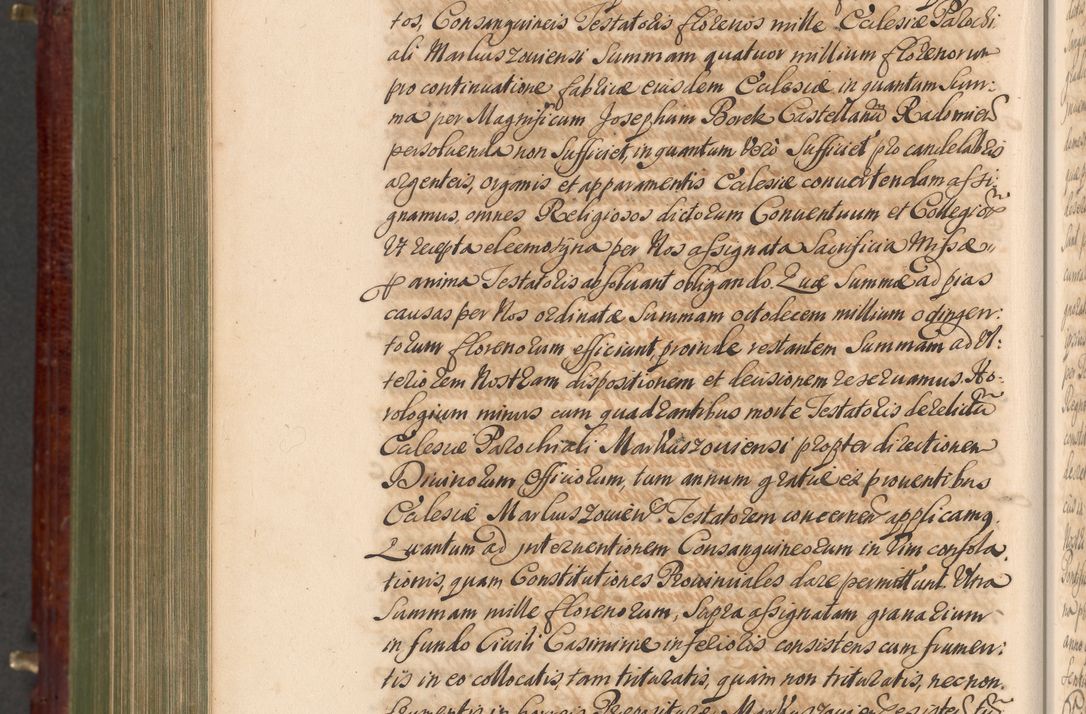 tos, Consanguineis Testatoris florenos mille Ecclesiæ Parochi
ali Markuszoviensi Summam quatuor millium florenorum
pro continuatione fabricæ eiusdem Ecclesiæ in quantum Sum:
ma per Magnificum Josephum Borek Castellanũ Radomien
persoluenda non Sufficiet, in quantum Verò Sufficiet pro candelabris
argenteis, organis et apparamentis Ecclesiæ conuertendam assi:
gnamus, omnes Religiosos dictorum Conuentuum et Collegiorũ
Ut recepta eleemosyna per Nos assignata Sacrificia Missæ
anima Testatoris absoluant obligando. Quæ Summæ ad pias
causas per Nos ordinatæ Summam octodecem millium odingen:
torum florenorum efficiunt, proinde restantem Summam ad Ul:
teriorem Nostram dispositionem et decisionem reseruamus. Ho:
rologium minus cum quadrantibus morte Testatoris derelictũ
Ecclesiæ Parochiali Markuszouiensi propter directionem
Diuinorum officiorum, tum annum gratiæ ex prouentibus
Ecclesiæ Markuszouien. Testatorem concernen applicamq.
Quantum ad interuentionem Consanguineorum in Vim consola:
tionis, quam Constitutiones Prouinciales dare permittunt Ultra
Summam mille florenorum, Supra assignatam granarium
in fundo Ciuili Casimiriæ inferioris consistens cum frumen:
tis in eo collocatis, tam trituratis, quam non trituratis, nec non
frumentis in horreis Præpositurae Markuszouien